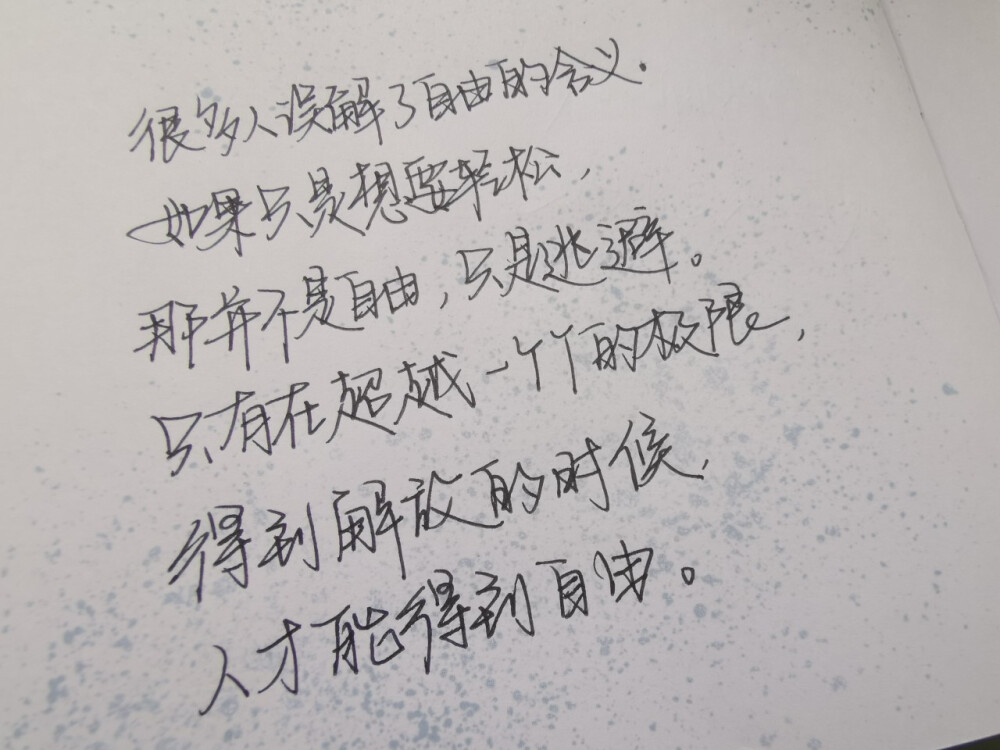 很多人误解了自由的含义.
如果只是想要轻松,
那并不是自由,只是逃避。
只有在超越一个个的极限,
得到解放的时候,
人才能得到自由。